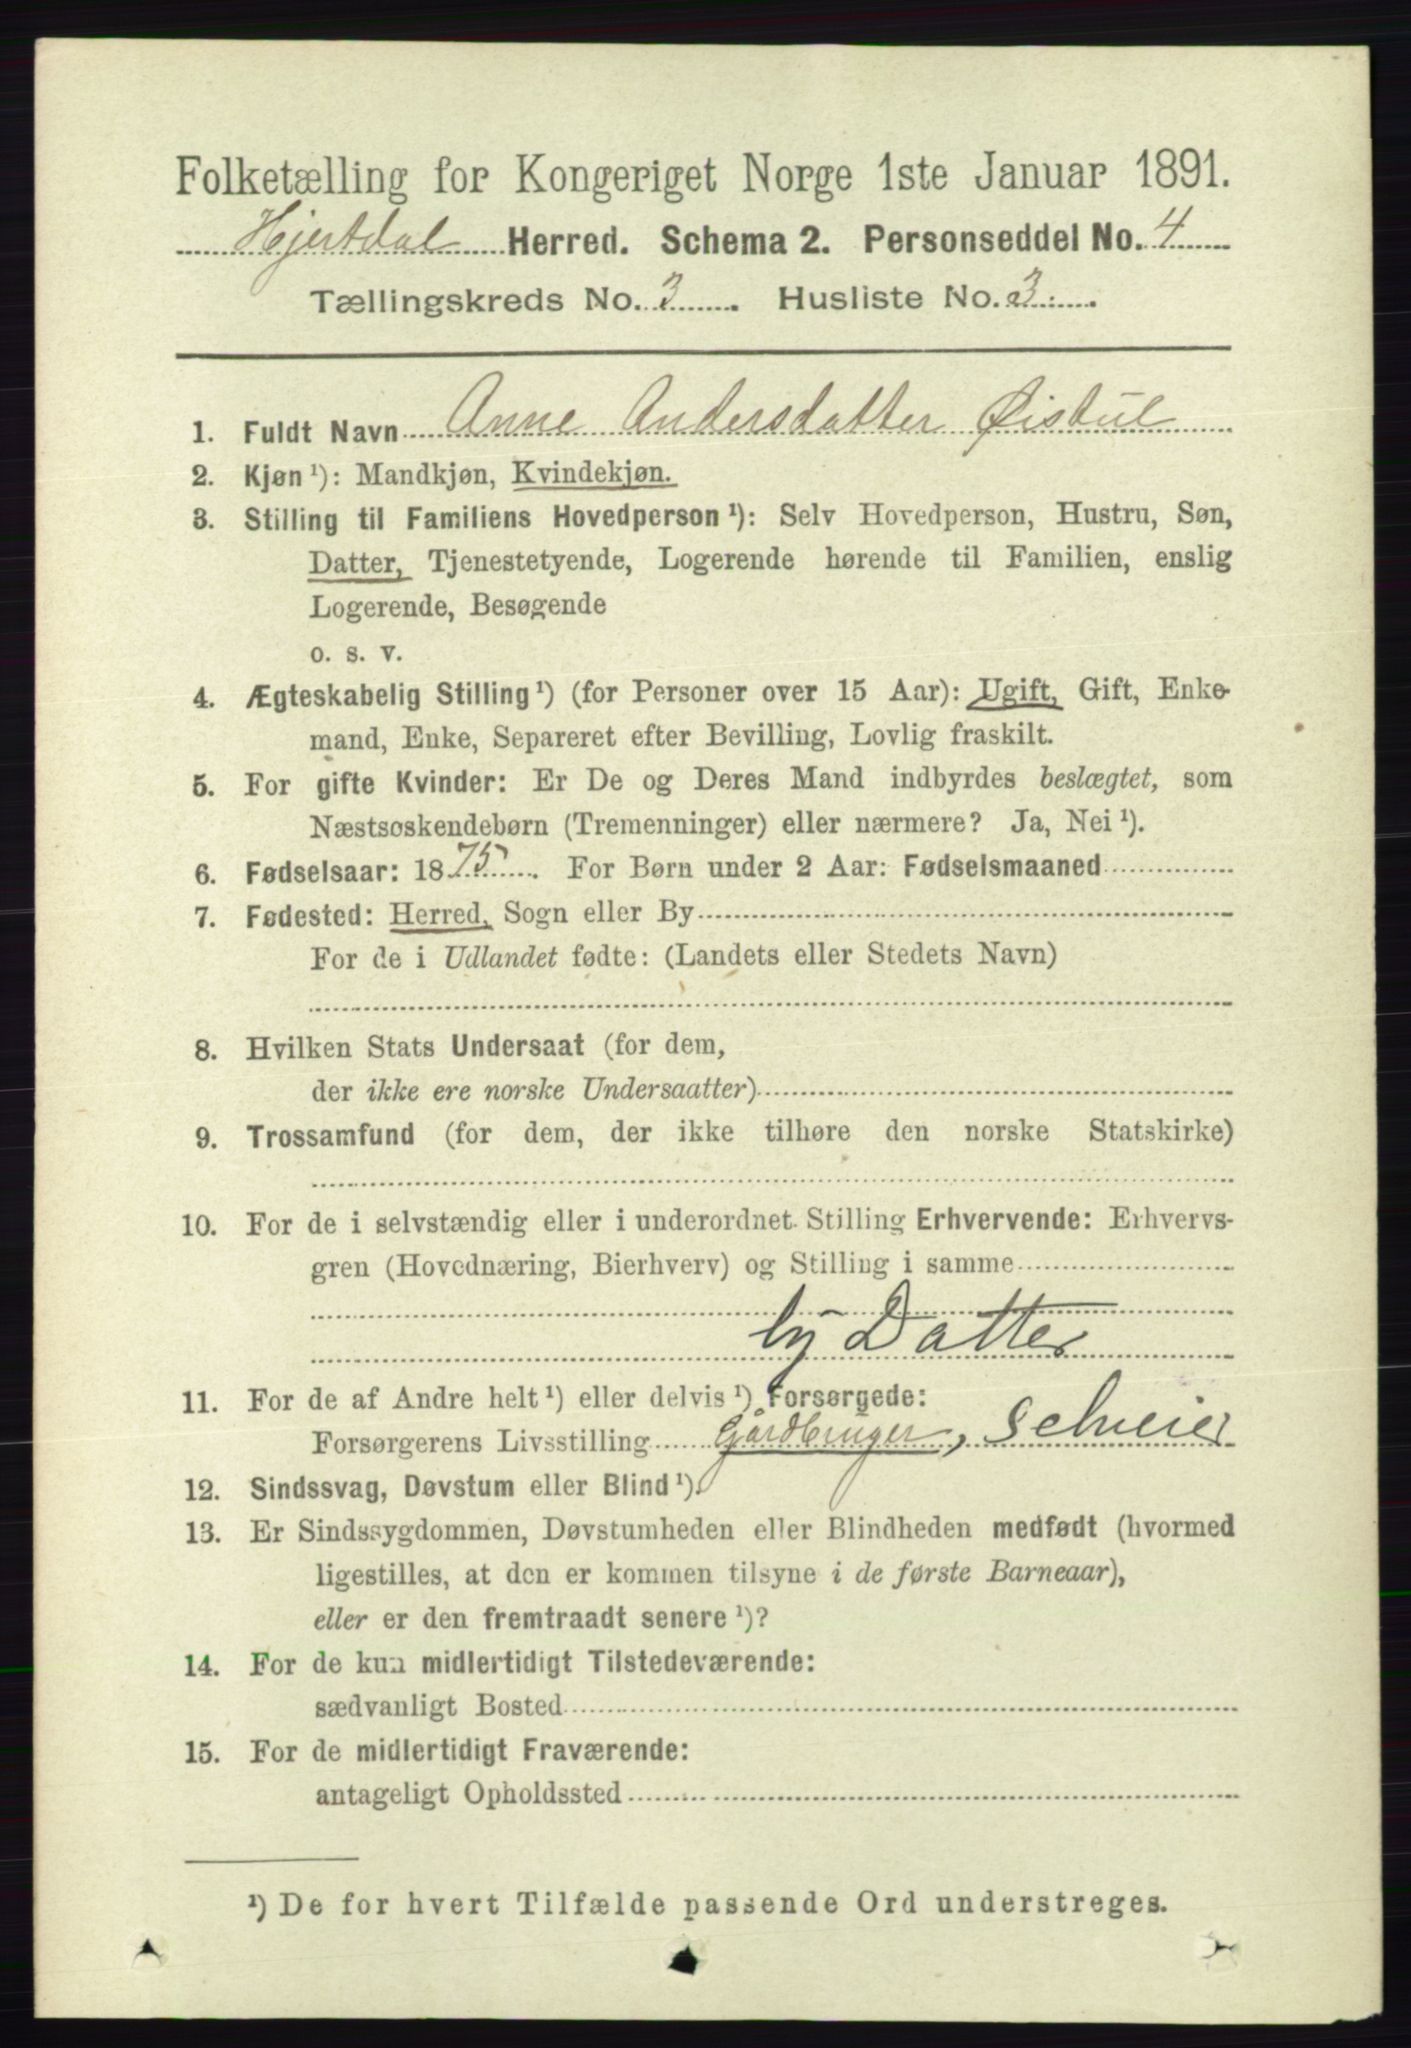 Folketælling for Kongeriget Norge 1ste Januar 1891.
Hjertdal Herred. Schema 2. Personseddel No. 4
Tællingskreds No. 3. Husliste No. 3.
1. Fuldt Navn Anne Andersdatter Øistul
2. Kjøn ¹): Mandkjøn, Kvindekjøn.
3. Stilling til Familiens Hovedperson ¹): Selv Hovedperson, Hustru, Søn,
Datter, Tjenestetyende, Logerende hørende til Familien, enslig
Logerende, Besøgende
o. s. v.
4. Ægteskabelig Stilling ¹) (for Personer over 15 Aar): Ugift, Gift, Enke-
mand, Enke, Separeret efter Bevilling, Lovlig fraskilt.
5. For gifte Kvinder: Er De og Deres Mand indbyrdes beslægtet, som
Næstsøskendebørn (Tremenninger) eller nærmere? Ja, Nei ¹).
6. Fødselsaar: 1875. For Børn under 2 Aar: Fødselsmaaned
7. Fødested: Herred, Sogn eller By
For de i Udlandet fødte: (Landets eller Stedets Navn)
8. Hvilken Stats Undersaat (for dem,
der ikke ere norske Undersaatter)
9. Trossamfund (for dem, der ikke tilhøre den norske Statskirke)
10. For de i selvstændig eller i underordnet Stilling Erhvervende: Erhvervs-
gren (Hovednæring, Bierhverv) og Stilling i samme
Datter
11. For de af Andre helt ¹) eller delvis ¹) Forsørgede:
Forsørgerens Livsstilling Gårdbruger, Selveier
12. Sindssvag, Døvstum eller Blind ¹).
13. Er Sindssygdommen, Døvstumheden eller Blindheden medfødt (hvormed
ligestilles, at den er kommen tilsyne i de første Barneaar),
eller er den fremtraadt senere ¹)?
14. For de kun midlertidigt Tilstedeværende:
sædvanligt Bosted
15. For de midlertidigt Fraværende:
antageligt Opholdssted
¹) De for hvert Tilfælde passende Ord understreges.